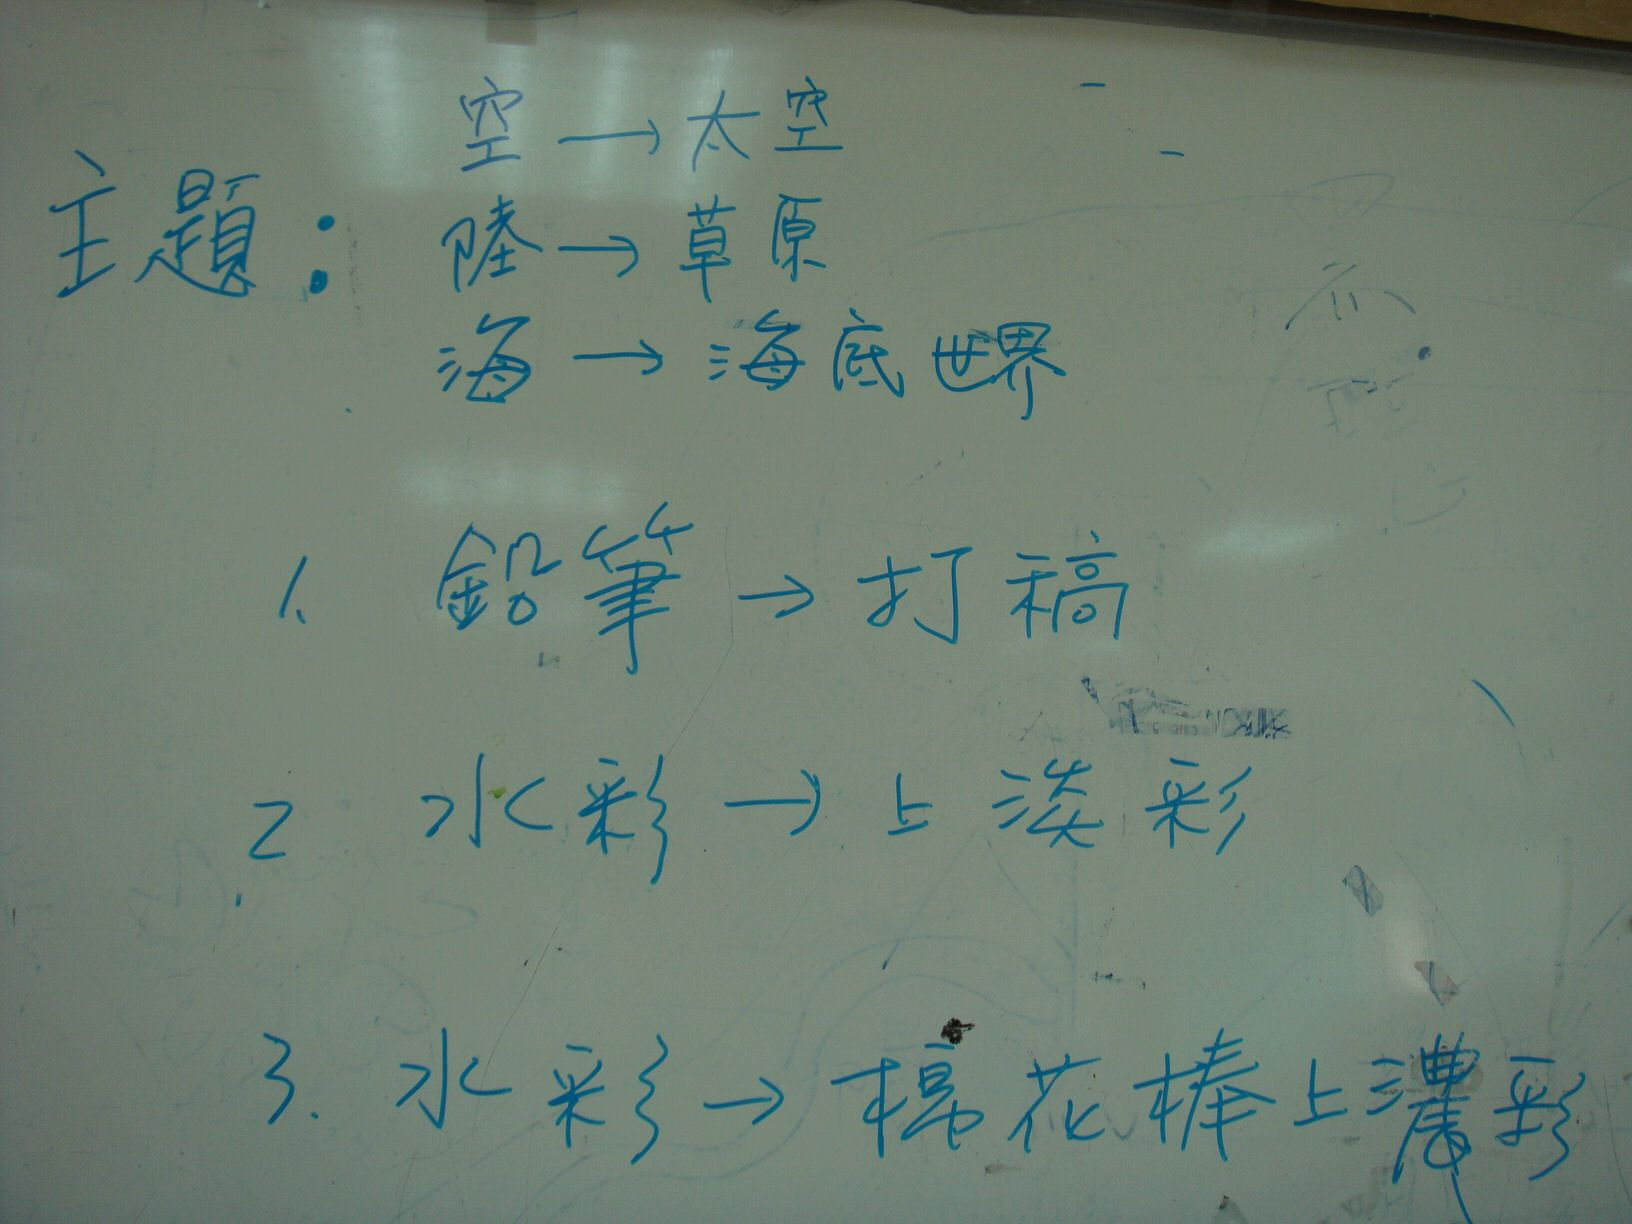 空→太空
主題：陸→草原
海→海底世界
1. 鉛筆→打稿
2. 水彩→上淡彩
3. 水彩→棉花棒上濃彩